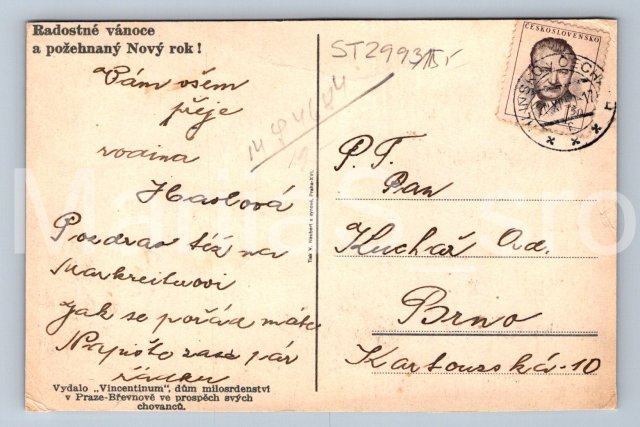 Radostné vánoce
a požehnaný Nový rok!
Vám všem
přeje
rodina
Haslová
Pozdrav též na
Jak se pořád máte
Napište zase pár
řádku
Vydalo „Vincentinum", dům milosrdenství
v Praze-Břevnově ve prospěch svých
chovanců.
Tisk V. Neubert a synové, Praha-XVI.
ST2993/15r
ČESKOSLOVENSKO
P. T.
Pan
Kuchař Ad.
Brno
Kartouzská-10